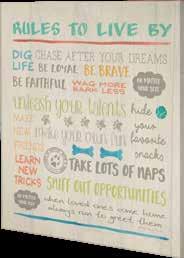 RULES TO LIVE BY
DIG CHASE AFTER YOUR DREAMS
LIFE BE LOYAL BE BRAVE
BE FAITHFUL WAG MORE
BARK LESS
NO MATTER
YOUR SIZE
unleash your talents
hide
your
favorite
snacks
MAKE
NEW
FRIENDS
make your own fun
LEARN
NEW
TRICKS
TAKE LOTS OF NAPS
SNIFF OUT OPPORTUNITIES
when loved ones come home
always run to greet them